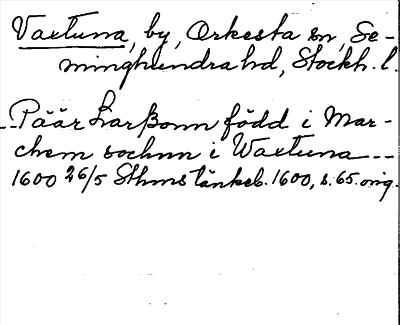 Vaxtuna, by, Orkesta sn, Se-
minghundra hd, Stockh. l.
Päär Larßonn född i Mar-
chem sochnn i Waxtuna---
1600 26/5 Sthms tänkeb. 1600, s. 65. orig.